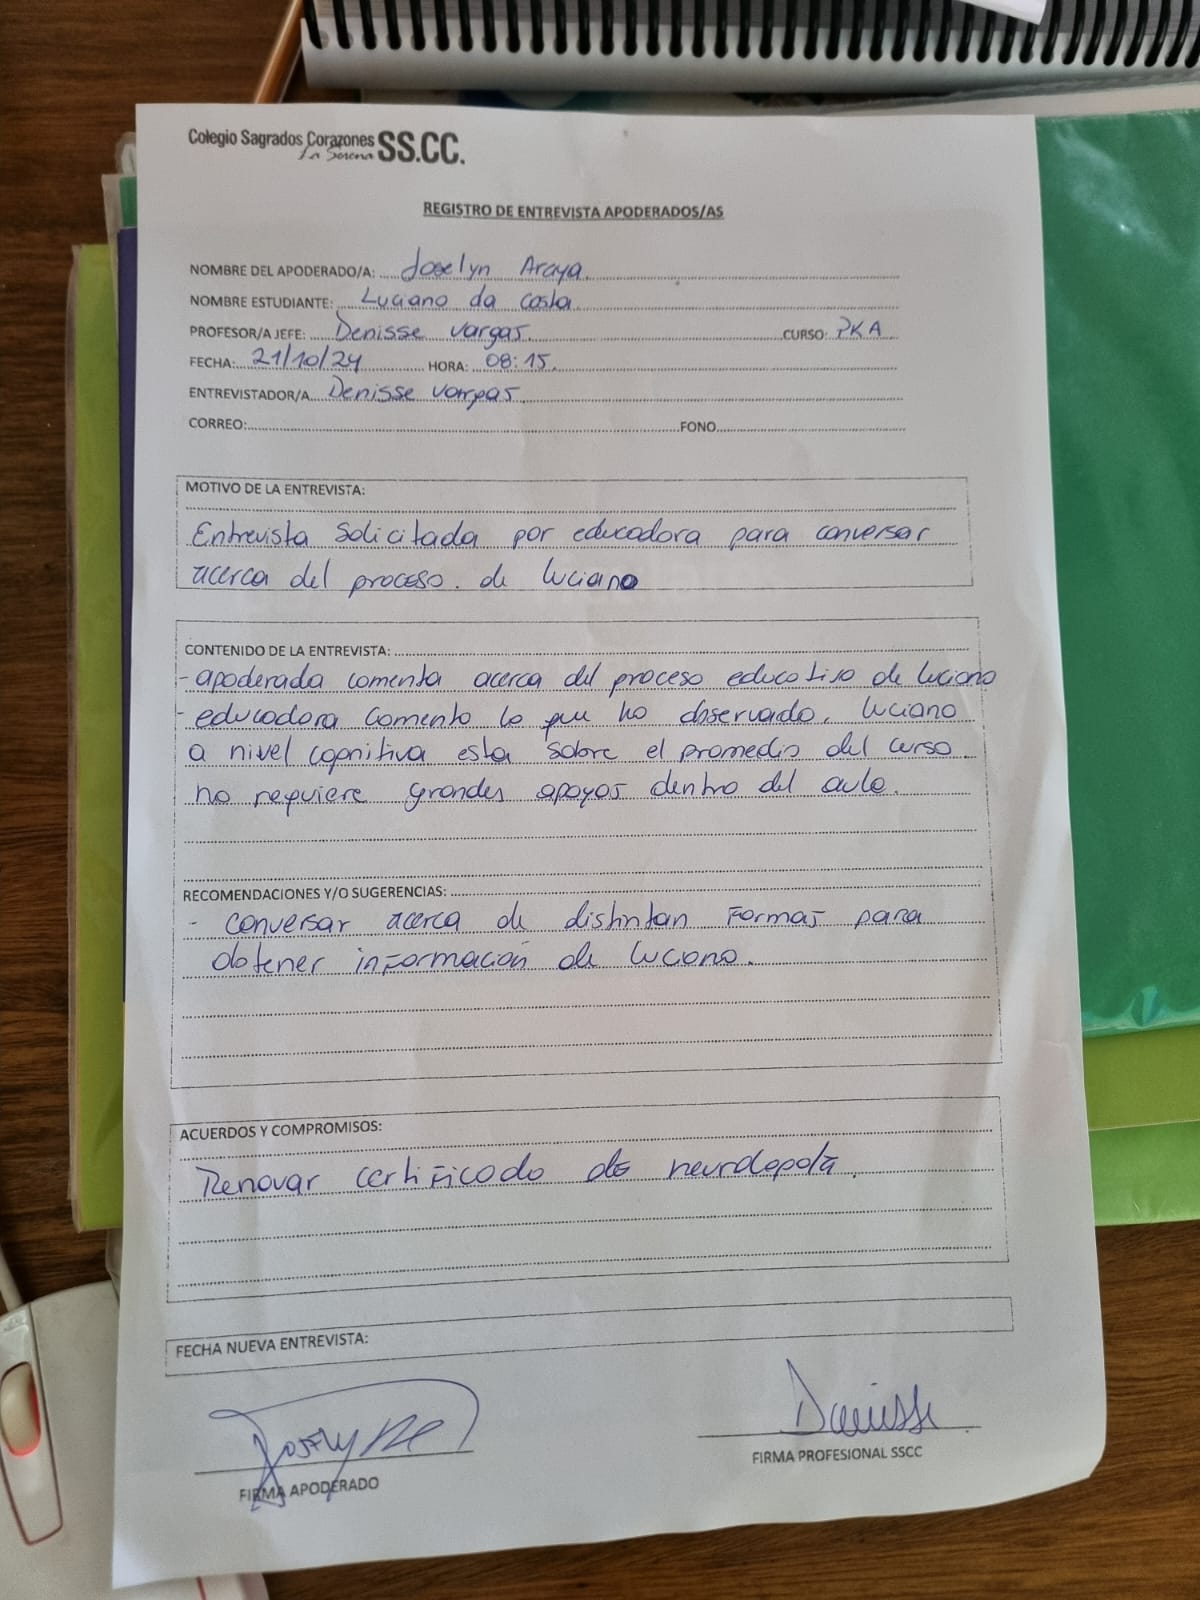 Colegio Sagrados Corazones SS.CC.
La Serena
REGISTRO DE ENTREVISTA APODERADOS/AS
NOMBRE DEL APODERADO/A: Joselyn Araya
NOMBRE ESTUDIANTE: Luciano da costa
PROFESOR/A JEFE: Denisse Vargas. CURSO: PKA
FECHA: 21/10/24 HORA: 08:15.
ENTREVISTADOR/A Denisse Vargas.
CORREO: FONO
MOTIVO DE LA ENTREVISTA:
Entrevista Solicitada por educadora para conversar
acerca del proceso. de luciano
CONTENIDO DE LA ENTREVISTA:
- apoderada comenta acerca del proceso educativo de luciano
- educadora comenta lo que ha observado. luciano
a nivel cognitiva esta sobre el promedio del curso.
no requiere grandes apoyos dentro del aula.
RECOMENDACIONES Y/O SUGERENCIAS:
- conversar acerca de distintan formas para
obtener información de luciano.
ACUERDOS Y COMPROMISOS:
Renovar certificado de
FECHA NUEVA ENTREVISTA:
Denisse
FIRMA APODERADO
FIRMA PROFESIONAL SSCC